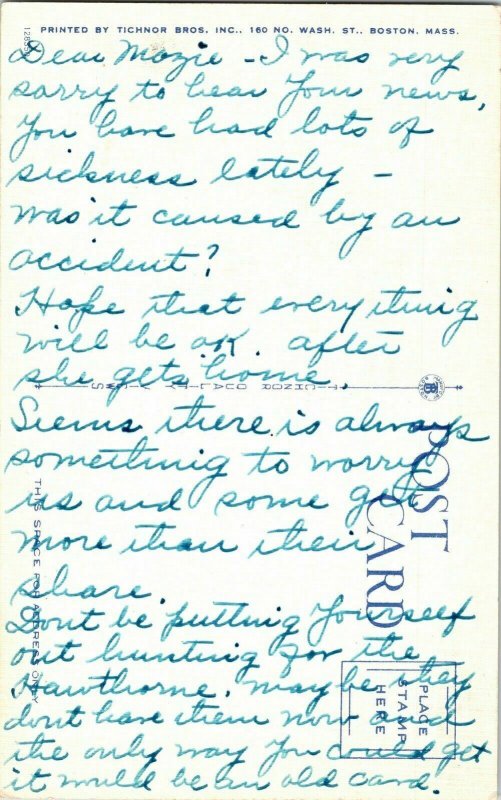 PRINTED BY TICHNOR BROS. INC., 160 NO. WASH. ST., BOSTON, MASS.
Dear Mazie - I was very
sorry to hear Your news,
You have had lots of
sickness lately -
Was it caused by an
accident?
Hope that everything
will be OK. after
she gets home.
Seems there is always
something to worry
us and some get
more than their
share.
Dont be putting Yourself
out hunting for the
Hawthorne. maybe they
dont have them now and
the only way You could get
it would be an old card.
TICHNOR QUALITY VIEWS
POST CARD
THIS SPACE FOR ADDRESS ONLY
PLACE
STAMP
HERE